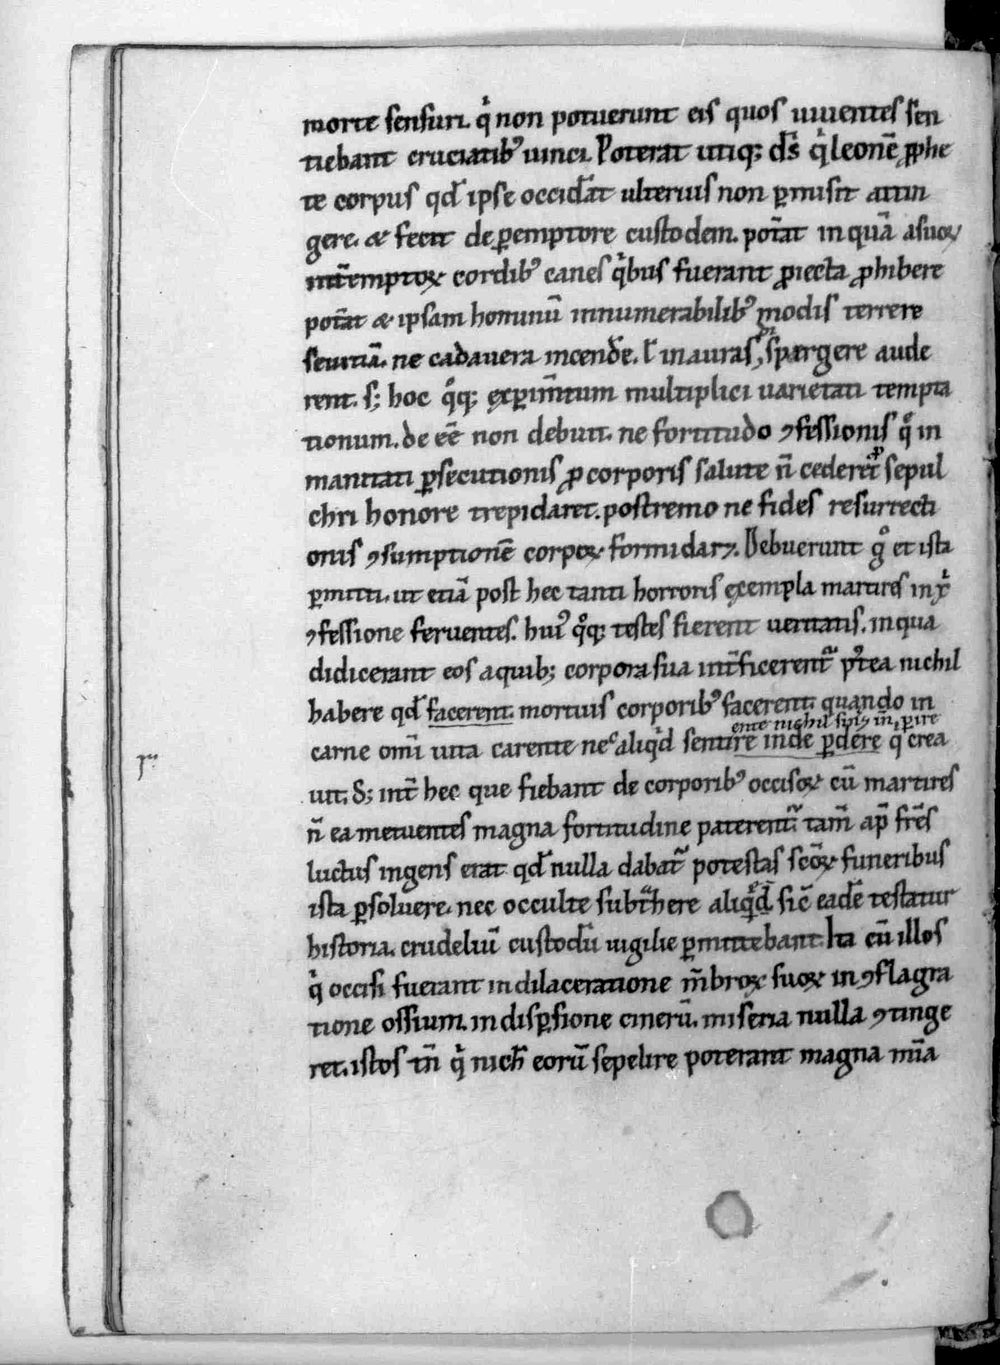 morte sensuri. qͥ non potuerunt eis quos uiuentes sen
tiebant cruciatibꝰ uinci. Poterat utiqꝫ ds̄ qͥ leonē ꝓphe
te corpus qd̄ ipse occid̄at ulterius non ꝑmisit attin
gere. & fecit de ꝑemptore custodem. pot̄at inquā a suoꝝ
int̄emptoꝝ cordibꝰ canes qͥbus fuerant ꝓiecta ꝓhibere
pot̄at & ipsam hominū innumerabilibꝰ modis terrere
seuitiā. ne cadauera incend̄e. ł in auras spargere aude
rent. sꝫ hoc qͦqꝫ exꝑim̄tum multiplici uarietati tempta
tionum. de eē non debuit. ne fortitudo ꝯfessionis qͦ in
manitati ꝑsecutionis ꝓ corporis salute n̄ cederet̄ ꝓ sepul
chri honore trepidaret. postremo ne fides resurrecti
onis ꝯsumptionē corpoꝝ formidarꝫ. Debuerunt gͦ et ista
ꝑmitti. ut etiā post hec tanti horroris exempla martires in xͥ
ꝯfessione feruentes. huiꝰ qͦqꝫ testes fierent ueritatis. in qua
didicerant eos a quibꝫ corpora sua int̄ficerentᷣ pꝰtea nichil
habere qd̄ facerent. mortuis corporibꝰ facerent. quando in
ente nichil ꝑire
carne omī uita carente nec aliqͥd sentire inde ꝑdere qͥ crea
uit. Sꝫ int̄ hec que fiebant de corporibꝰ occisoꝝ cū martires
n̄ ea metuentes magna fortitudine paterentᷣ tam̄ ap̄ fr̄es
luctus ingens erat qd̄ nulla dabatᷣ potestas sc̄oꝝ funeribus
ista ꝑsoluere. nec occulte subt̄here aliqͥd sic̄ eadē testatur
historia. crudeliū custodū uigilie ꝑmittebant. Ita cū illos
qͥ occisi fuerant in dilaceratione m̄broꝝ suoꝝ in ꝯflagra
tione ossium. in disꝑsione cinerū. miseria nulla ꝯtinge
ret. istos tn̄ qͥ nich̄ eorū sepelire poterant magna mīa